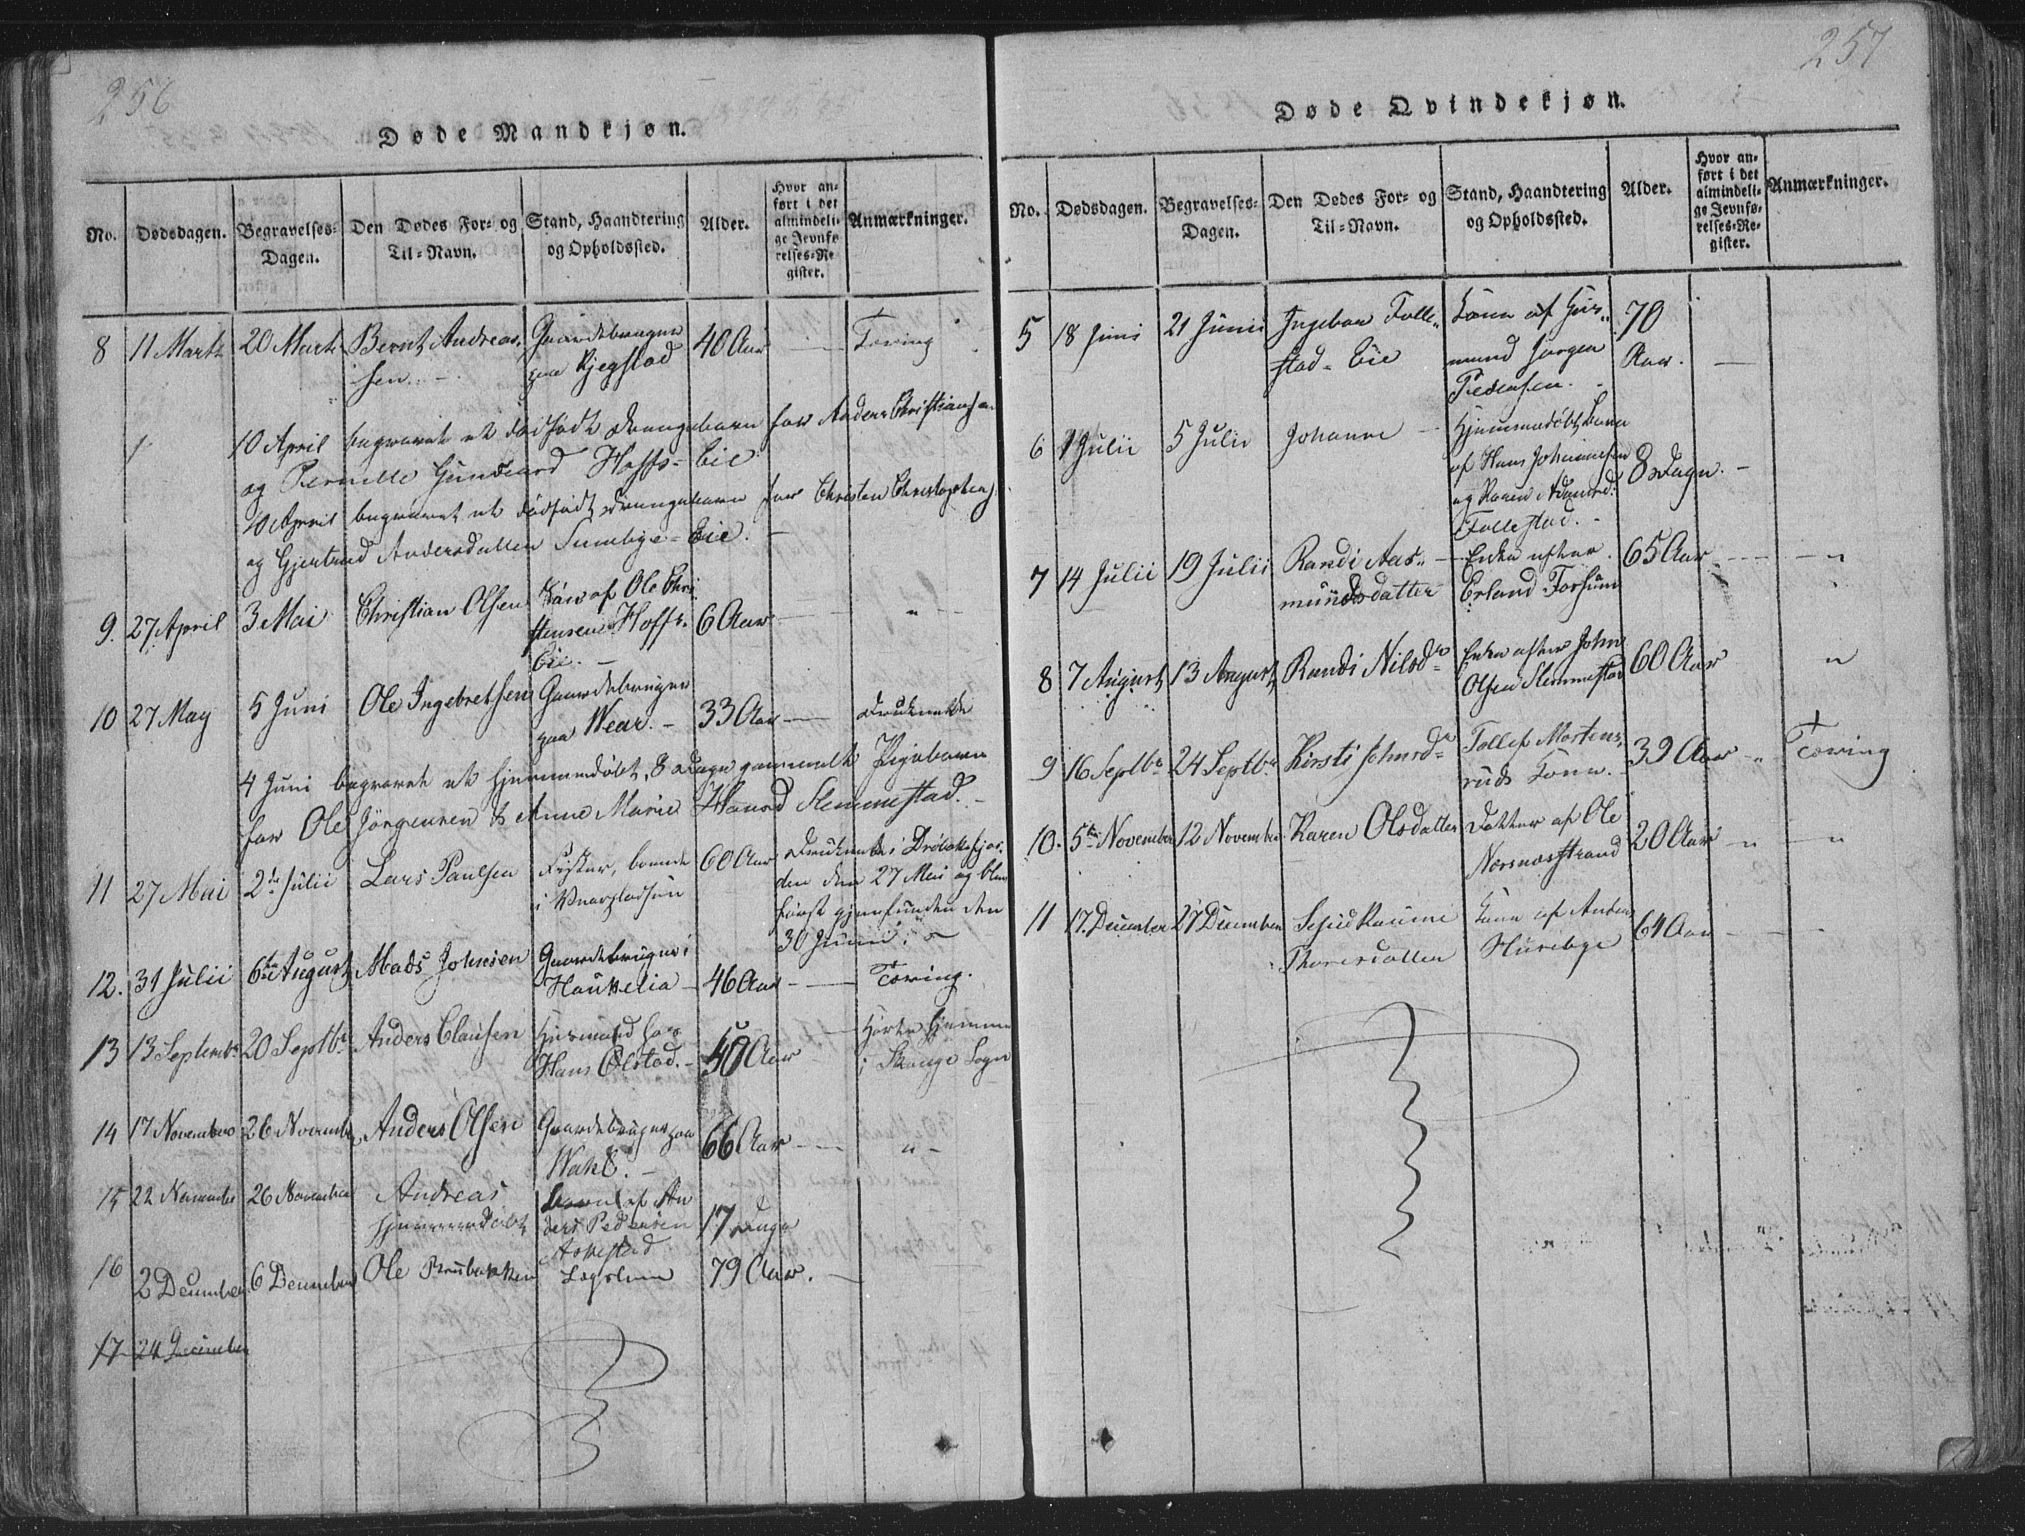 256
Døde Mandkjøn.
No.
Dødsdagen.
Begravelses-
Dagen.
Den Dødes For- og
Til-Navn.
Stand, Haandtering
og Opholdssted.
Alder.
Hvor an-
ført i det
almindeli-
ge Jevnfø-
relses-Re-
gister.
Anmærkninger.
8 11 Marts 20 Marts Bernt Andreas- Gaardebruger 40 Aar — Tæring
sen — paa
10 April begravet et dødfødt Drengebarn for Anders Christiansen
og Pernille Hoffs-Eie
10 April begravet et dødfødt Drengebarn for Christen
og Gjertrud Andersdatter Eie. —
9. 27 April 3 Mai Christian Olsen Søn af Ole Chri 6 Aar — "
Hoffs-
Eie. —
10 27 May 5 Juni Ole Ingebretsen Gaardebruger 33 Aar — Druknede
paa Wear. —
4 Juni begravet et hjemmedøbt, 8 Dage gammelt Pigebarn
for Ole Jörgensen & Anne Marie Slemmestad. —
11 27 Mai 2de Julii Lars Paulsen Fisker, boende 60 Aar Druknede i Drøbaksfjor-
i den den 27 Mai og blev
først gjenfunden den
30 Juni
12. 31 Julii 6te August Mads Johnsen Gaardebruger i 46 Aar — Tæring.
Haukelia —
13 13 Septembr 20 Septbr Anders Clausen Husmand 50 Aar — Hørte hjemme
Hans Ølstad. — i Sogn
14 17 November 26 November Anders Olsen Gaardebruger paa 66 Aar — " —
—
15 22 November 26 November Andreas Barn af An
hjemmedøbt ders Pedersen 17 Dage
16 2 December 6 December Ole Lægslem 79 Aar. —
17 24 December
257
Døde Qvindekjøn.
No.
Dødsdagen.
Begravelses-
Dagen.
Den Dødes For- og
Til-Navn.
Stand, Haandtering
og Opholdssted.
Alder.
Hvor an-
ført i det
almindeli-
ge Jevnfø-
relses-Re-
gister.
Anmærkninger.
5 18 Juni 21 Junii Ingebor Folle- Kone af Hus- 70
stad-Eie mand Jørgen Aar. —
Pedersen. —
6 1 Julii 5 Julii Johanne — Hjemmedøbt Barn
af Hans Johannesen 8 Dage. —
og Karen
Follestad. —
7 14 Julii 19 Julii Randi Aas- Enke efter 65 Aar — "
mundsdatter Erland
8 7 August 13 August Randi Nilsdr Enke efter John 60 Aar "
Olsen Slemmestad
9 16 Septbr 24 Septbr Kirsti Johnsdr Tollef Mortens- 39 Aar — " Tæring
ruds Kone.
10. 5te November 12 November Karen Olsdatter Datter af Ole 20 Aar — " — "
Næsnæsstrand
11 17. December 27 December Kone af Anders 64 Aar — —
Thoresdatter